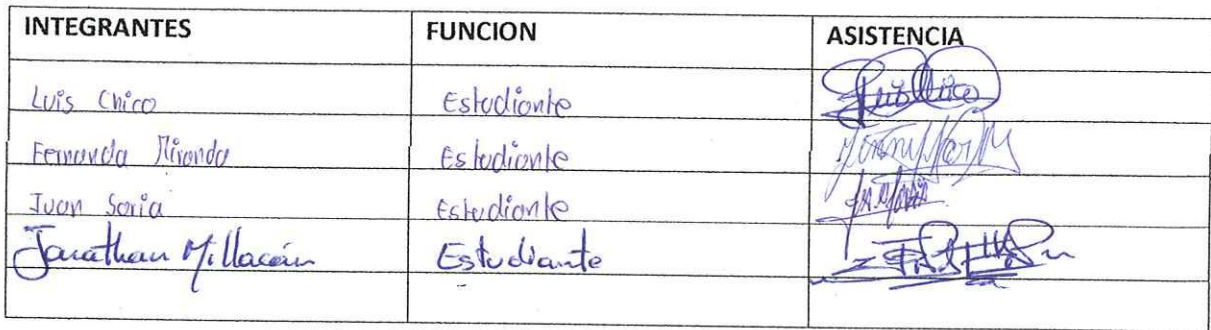 INTEGRANTES FUNCION ASISTENCIA
Luis Chico Estudiante
Fernanda Miranda Estudiante
Juan Soria Estudiante
Jonathan Millacáin Estudiante